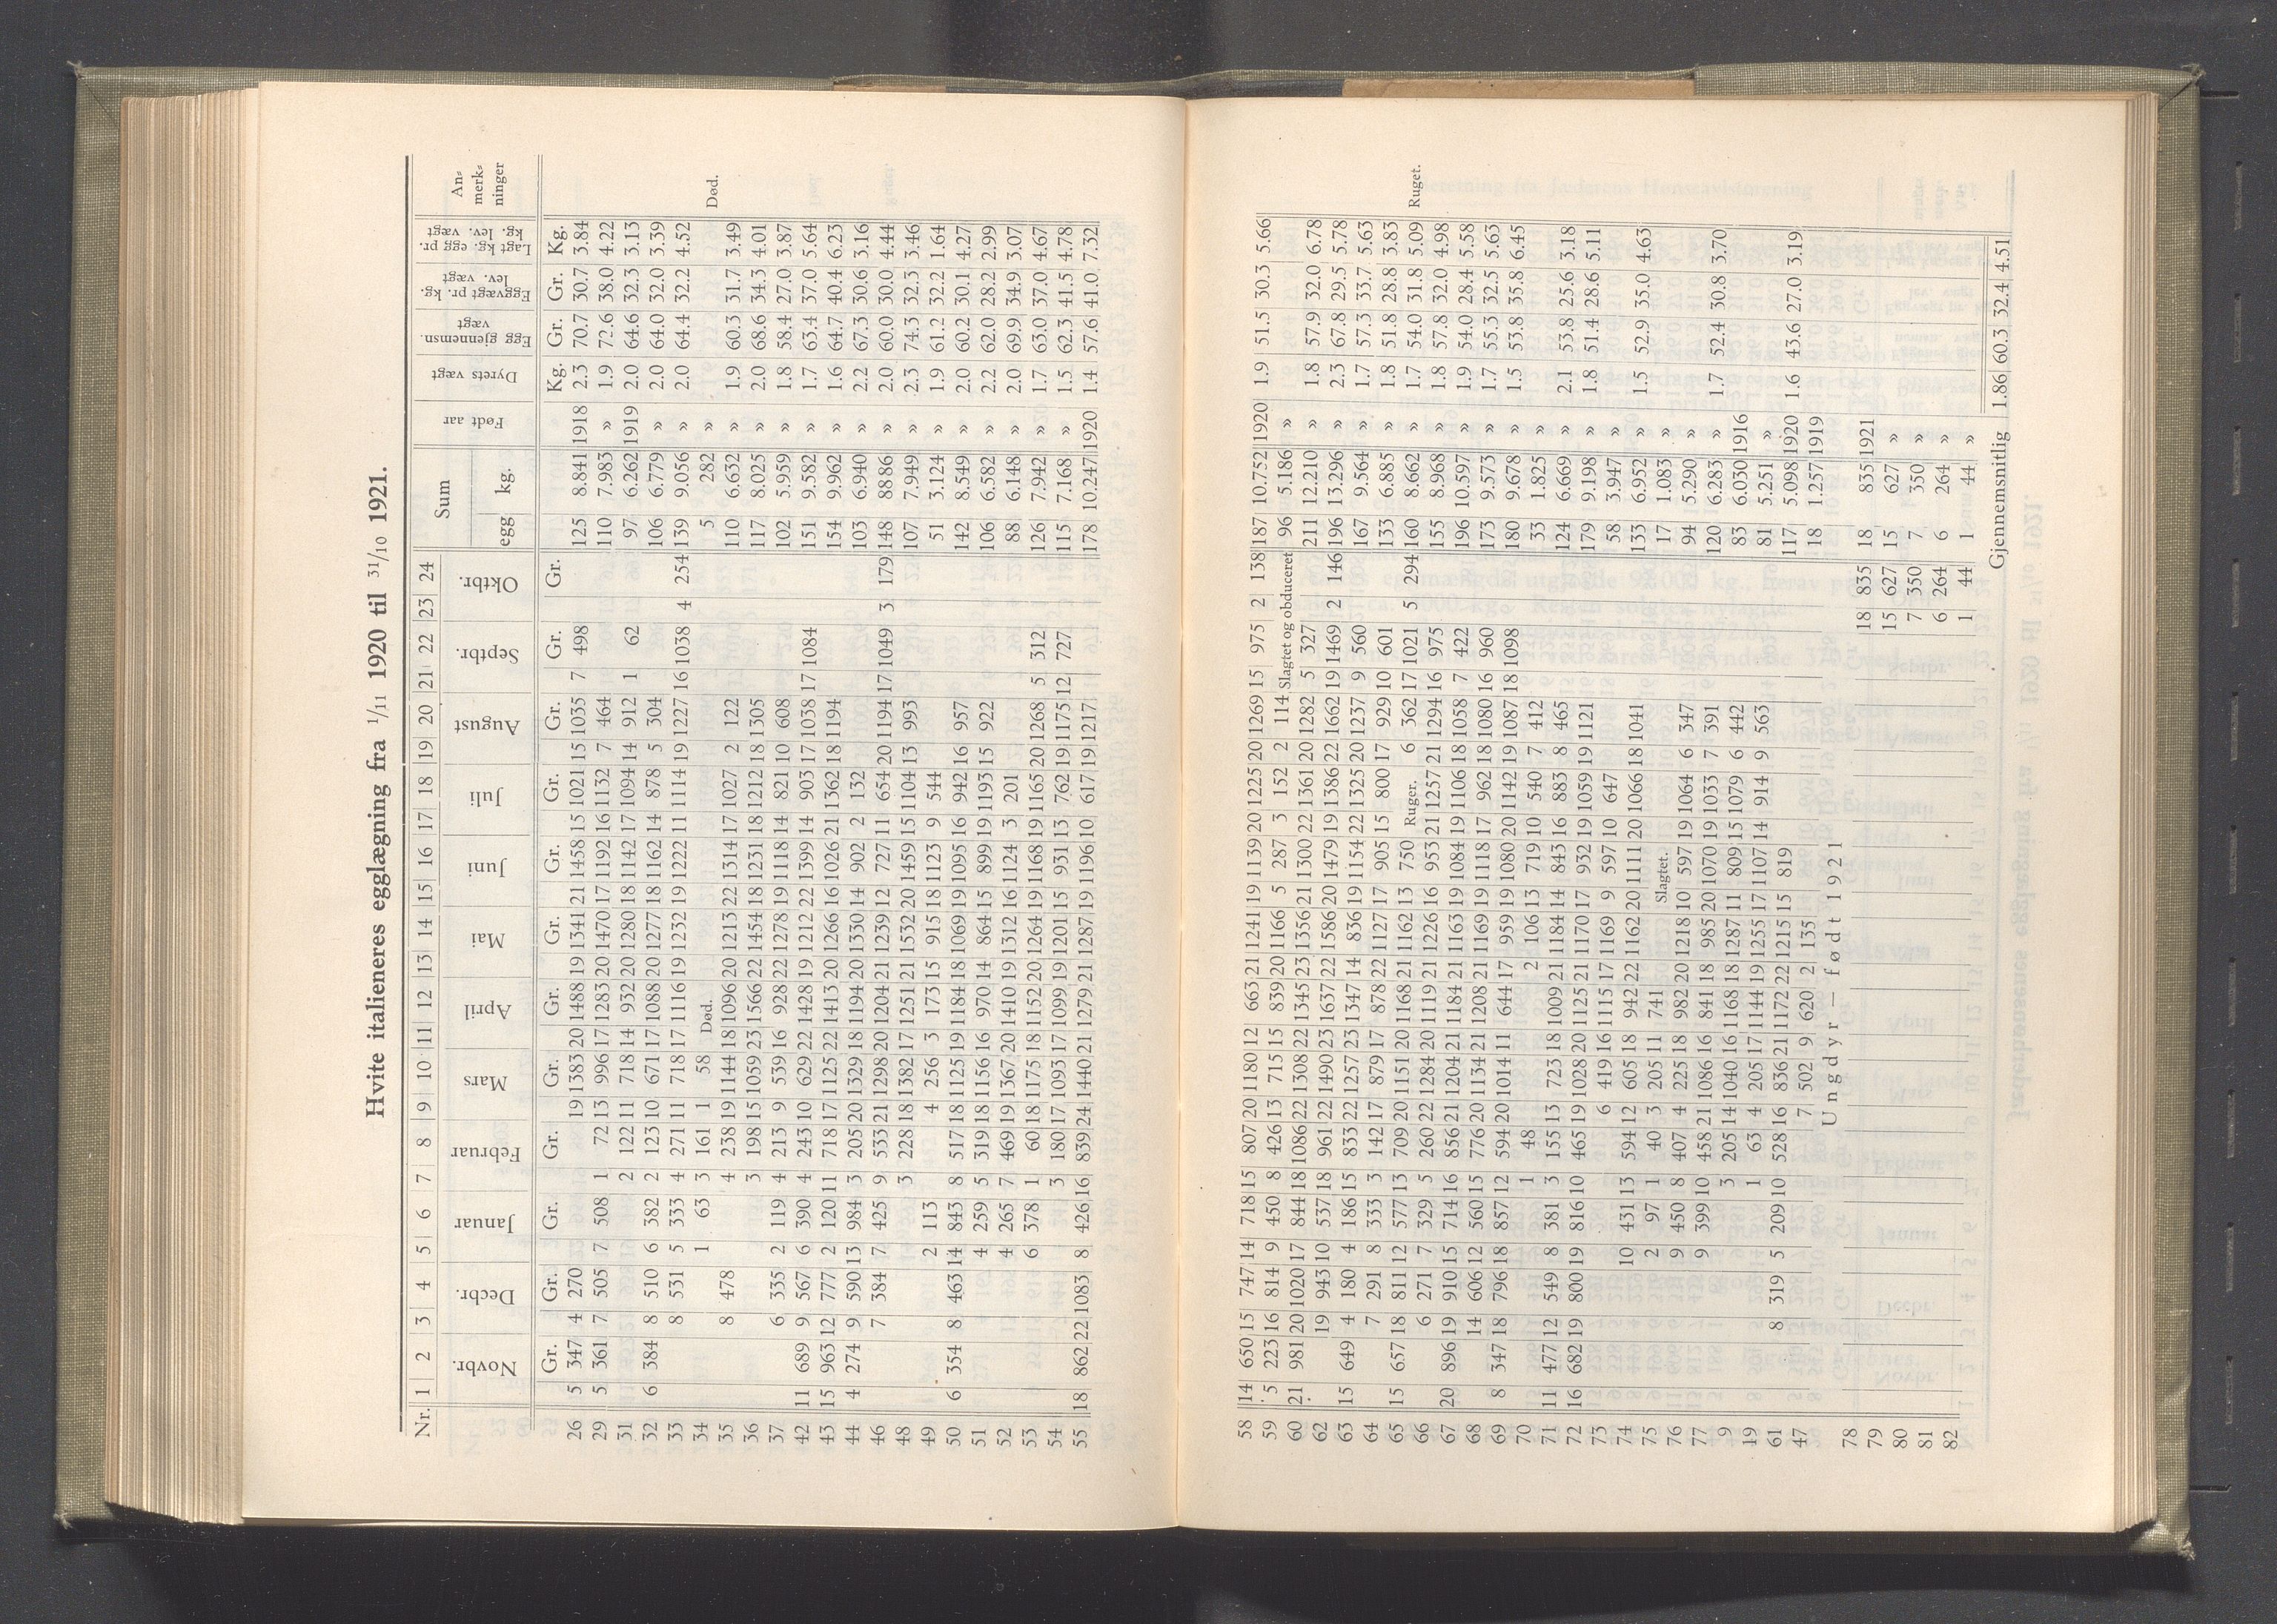 Hvite italieneres egglægning fra 1/11 1920 til 31/10 1921.
Nr. 1 2 3 4 5 6 7 8 9 10 11 12 13 14 15 16 17 18 19 20 21 22 23 24 Sum Født aar Dyrets vægt Egg gjennemsn. vægt Eggvægt pr. kg. lev. vægt Lagt kg. egg pr. kg. lev. vægt An- merk- ninger
Novbr. Decbr. Januar Februar Mars April Mai Juni Juli August Septbr. Oktbr. egg kg.
Gr. Gr. Gr. Gr. Gr. Gr. Gr. Gr. Gr. Gr. Gr. Gr. Kg. Gr. Gr. Kg.
26 5 347 4 270 19 1383 20 1488 19 1341 21 1458 15 1021 15 1035 7 498 125 8.841 1918 2.3 70.7 30.7 3.84
29 5 361 7 505 7 508 1 72 13 996 17 1283 20 1470 17 1192 16 1132 7 464 110 7.983 » 1.9 72.6 38.0 4.22
31 2 122 11 718 14 932 20 1280 18 1142 17 1094 14 912 1 62 97 6.262 1919 2.0 64.6 32.3 3.13
32 6 384 8 510 6 382 2 123 10 671 17 1088 20 1277 18 1162 14 878 5 304 106 6.779 » 2.0 64.0 32.0 3.39
33 8 531 5 333 4 271 11 718 17 1116 19 1232 19 1222 11 1114 19 1227 16 1038 4 254 139 9.056 » 2.0 64.4 32.2 4.52
34 1 63 3 161 1 58 Død. 5 282 » Død.
35 8 478 4 238 19 1144 18 1096 20 1213 22 1314 17 1027 2 122 110 6.632 » 1.9 60.3 31.7 3.49
36 3 198 15 1059 23 1566 22 1454 18 1231 18 1212 18 1305 117 8.025 » 2.0 68.6 34.3 4.01
37 6 335 2 119 4 213 9 539 16 928 22 1278 19 1118 14 821 10 608 102 5.959 » 1.8 58.4 27.0 3.87
42 11 689 9 567 6 390 4 243 10 629 22 1428 19 1212 22 1399 14 903 17 1038 17 1084 151 9.582 » 1.7 63.4 37.0 5.64
43 15 963 12 777 2 120 11 718 17 1125 22 1413 20 1266 16 1026 21 1362 18 1194 154 9.962 » 1.6 64.7 40.4 6.23
44 4 274 9 590 13 984 3 205 20 1329 18 1194 20 1330 14 902 2 132 103 6.940 » 2.2 67.3 30.6 3.16
46 7 384 7 425 9 533 21 1298 20 1204 21 1239 12 727 11 654 20 1194 17 1049 3 179 148 8886 » 2.0 60.0 30.0 4.44
48 3 228 18 1382 17 1251 21 1532 20 1459 15 1104 13 993 107 7.949 » 2.3 74.3 32.3 3.46
49 2 113 4 256 3 173 15 915 18 1123 9 544 51 3.124 » 1.9 61.2 32.2 1.64
50 6 354 8 463 14 843 8 517 18 1125 19 1184 18 1069 19 1095 16 942 16 957 142 8.549 » 2.0 60.2 30.1 4.27
51 4 259 5 319 18 1156 16 970 14 864 15 899 19 1193 15 922 106 6.582 » 2.2 62.0 28.2 2.99
52 4 265 7 469 19 1367 20 1410 19 1312 16 1124 3 201 88 6.148 » 2.0 69.9 34.9 3.07
53 6 378 1 60 18 1175 18 1152 20 1264 19 1168 19 1165 20 1268 5 312 126 7.942 » 1.7 63.0 37.0 4.67
54 3 180 17 1093 17 1099 19 1201 15 931 13 762 19 1175 12 727 115 7.168 » 1.5 62.3 41.5 4.78
55 18 862 22 1083 8 426 16 839 24 1440 21 1279 21 1287 19 1196 10 617 19 1217 178 10.247 1920 1.4 57.6 41.0 7.32
58 14 650 15 747 14 718 15 807 20 1180 12 663 21 1241 19 1139 20 1225 20 1269 15 975 2 138 187 10.752 1920 1.9 51.5 30.3 5.66
59 5 223 16 814 9 450 8 426 13 715 15 839 20 1166 5 287 3 152 2 114 Slagtet og obduceret 96 5.186 »
60 21 981 20 1020 17 844 18 1086 22 1308 22 1345 23 1356 21 1300 22 1361 20 1282 5 327 211 12.210 » 1.8 57.9 32.0 6.78
62 19 943 10 537 18 961 22 1490 23 1637 22 1586 20 1479 19 1386 22 1662 19 1469 2 146 196 13.296 » 2.3 67.8 29.5 5.78
63 15 649 4 180 4 186 15 833 22 1257 23 1347 14 836 19 1154 22 1325 20 1237 9 560 167 9.564 » 1.7 57.3 33.7 5.63
64 7 291 8 333 3 142 17 879 17 878 22 1127 17 905 15 800 17 929 10 601 133 6.885 » 1.8 51.8 28.8 3.83
65 15 657 18 811 12 577 13 709 20 1151 20 1168 21 1162 13 750 Ruger. 6 362 17 1021 5 294 160 8.662 » 1.7 54.0 31.8 5.09 Ruget.
66 6 271 7 329 5 260 22 1284 20 1119 21 1226 16 953 21 1257 21 1294 16 975 155 8.968 » 1.8 57.8 32.0 4.98
67 20 896 19 910 15 714 16 856 21 1204 21 1184 21 1163 19 1084 19 1106 18 1058 7 422 196 10.597 » 1.9 54.0 28.4 5.58
68 14 606 12 560 15 776 20 1134 21 1208 21 1169 19 1118 17 962 18 1080 16 960 173 9.573 » 1.7 55.3 32.5 5.63
69 8 347 18 796 18 857 12 594 20 1014 11 644 17 959 19 1080 20 1142 19 1087 18 1098 180 9.678 » 1.5 53.8 35.8 6.45
70 1 48 2 106 13 719 10 540 7 412 33 1.825 »
71 11 477 12 549 8 381 3 155 13 723 18 1009 21 1184 14 843 16 883 8 465 124 6.669 » 2.1 53.8 25.6 3.18
72 16 682 19 800 19 816 10 465 19 1028 20 1125 21 1170 17 932 19 1059 19 1121 179 9.198 » 1.8 51.4 28.6 5.11
73 6 419 16 1115 17 1169 9 597 10 647 58 3.947 »
74 10 431 13 594 12 605 18 942 22 1162 20 1111 20 1066 18 1041 133 6.952 » 1.5 52.9 35.0 4.63
75 2 97 1 40 3 205 11 741 Slagtet. 17 1.083 »
76 9 450 8 407 4 225 18 982 20 1218 10 597 19 1064 6 347 94 5.290 »
77 9 399 10 458 21 1086 16 841 18 985 20 1070 19 1033 7 391 120 6.283 » 1.7 52.4 30.8 3.70
9 3 205 14 1040 16 1168 18 1287 11 809 15 1079 6 442 83 6.030 1916
19 1 63 4 205 17 1144 19 1255 17 1107 14 914 9 563 81 5.251 »
61 8 319 5 209 10 528 16 836 21 1172 22 1215 15 819 117 5.098 1920 1.6 43.6 27.0 3.19
47 7 502 9 620 2 135 18 1.257 1919
Ungdyr — født 1921
78 18 835 18 835 1921
79 15 627 15 627 »
80 7 350 7 350 »
81 6 264 6 264 »
82 1 44 1 44 »
Gjennemsnitlig 1.86 60.3 32.4 4.51